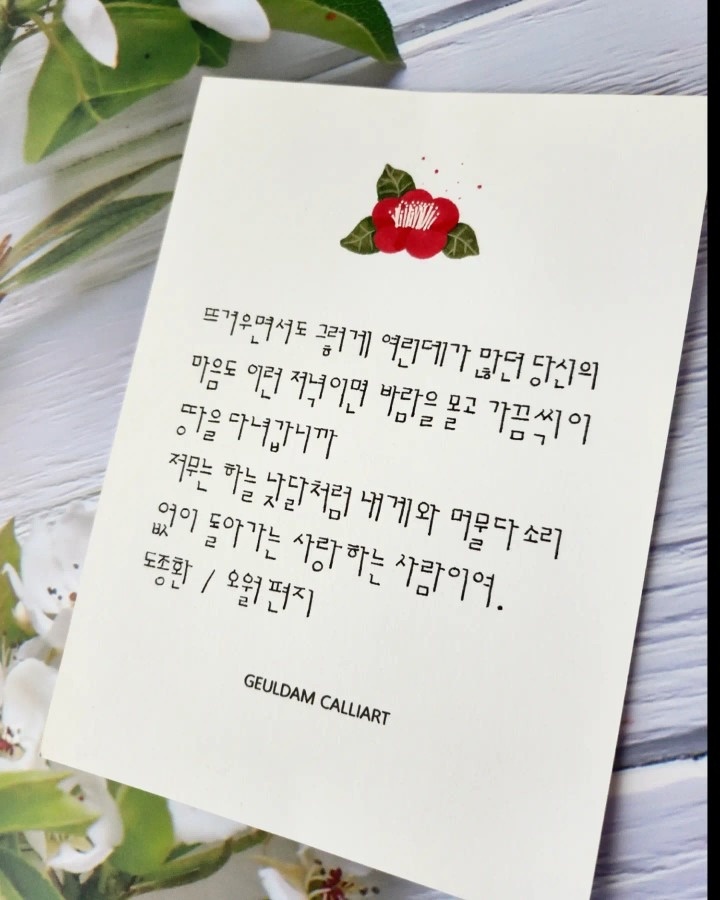 뜨거우면서도 그렇게 여린데가 많던 당신의
마음도 이런 저녁이면 바람을 몰고 가끔씩 이
땅을 다녀갑니까
저무는 하늘 낮달처럼 내게와 머물다 소리
없이 돌아가는 사랑하는 사람이여.
도종환 / 오월 편지
GEULDAM CALLIART